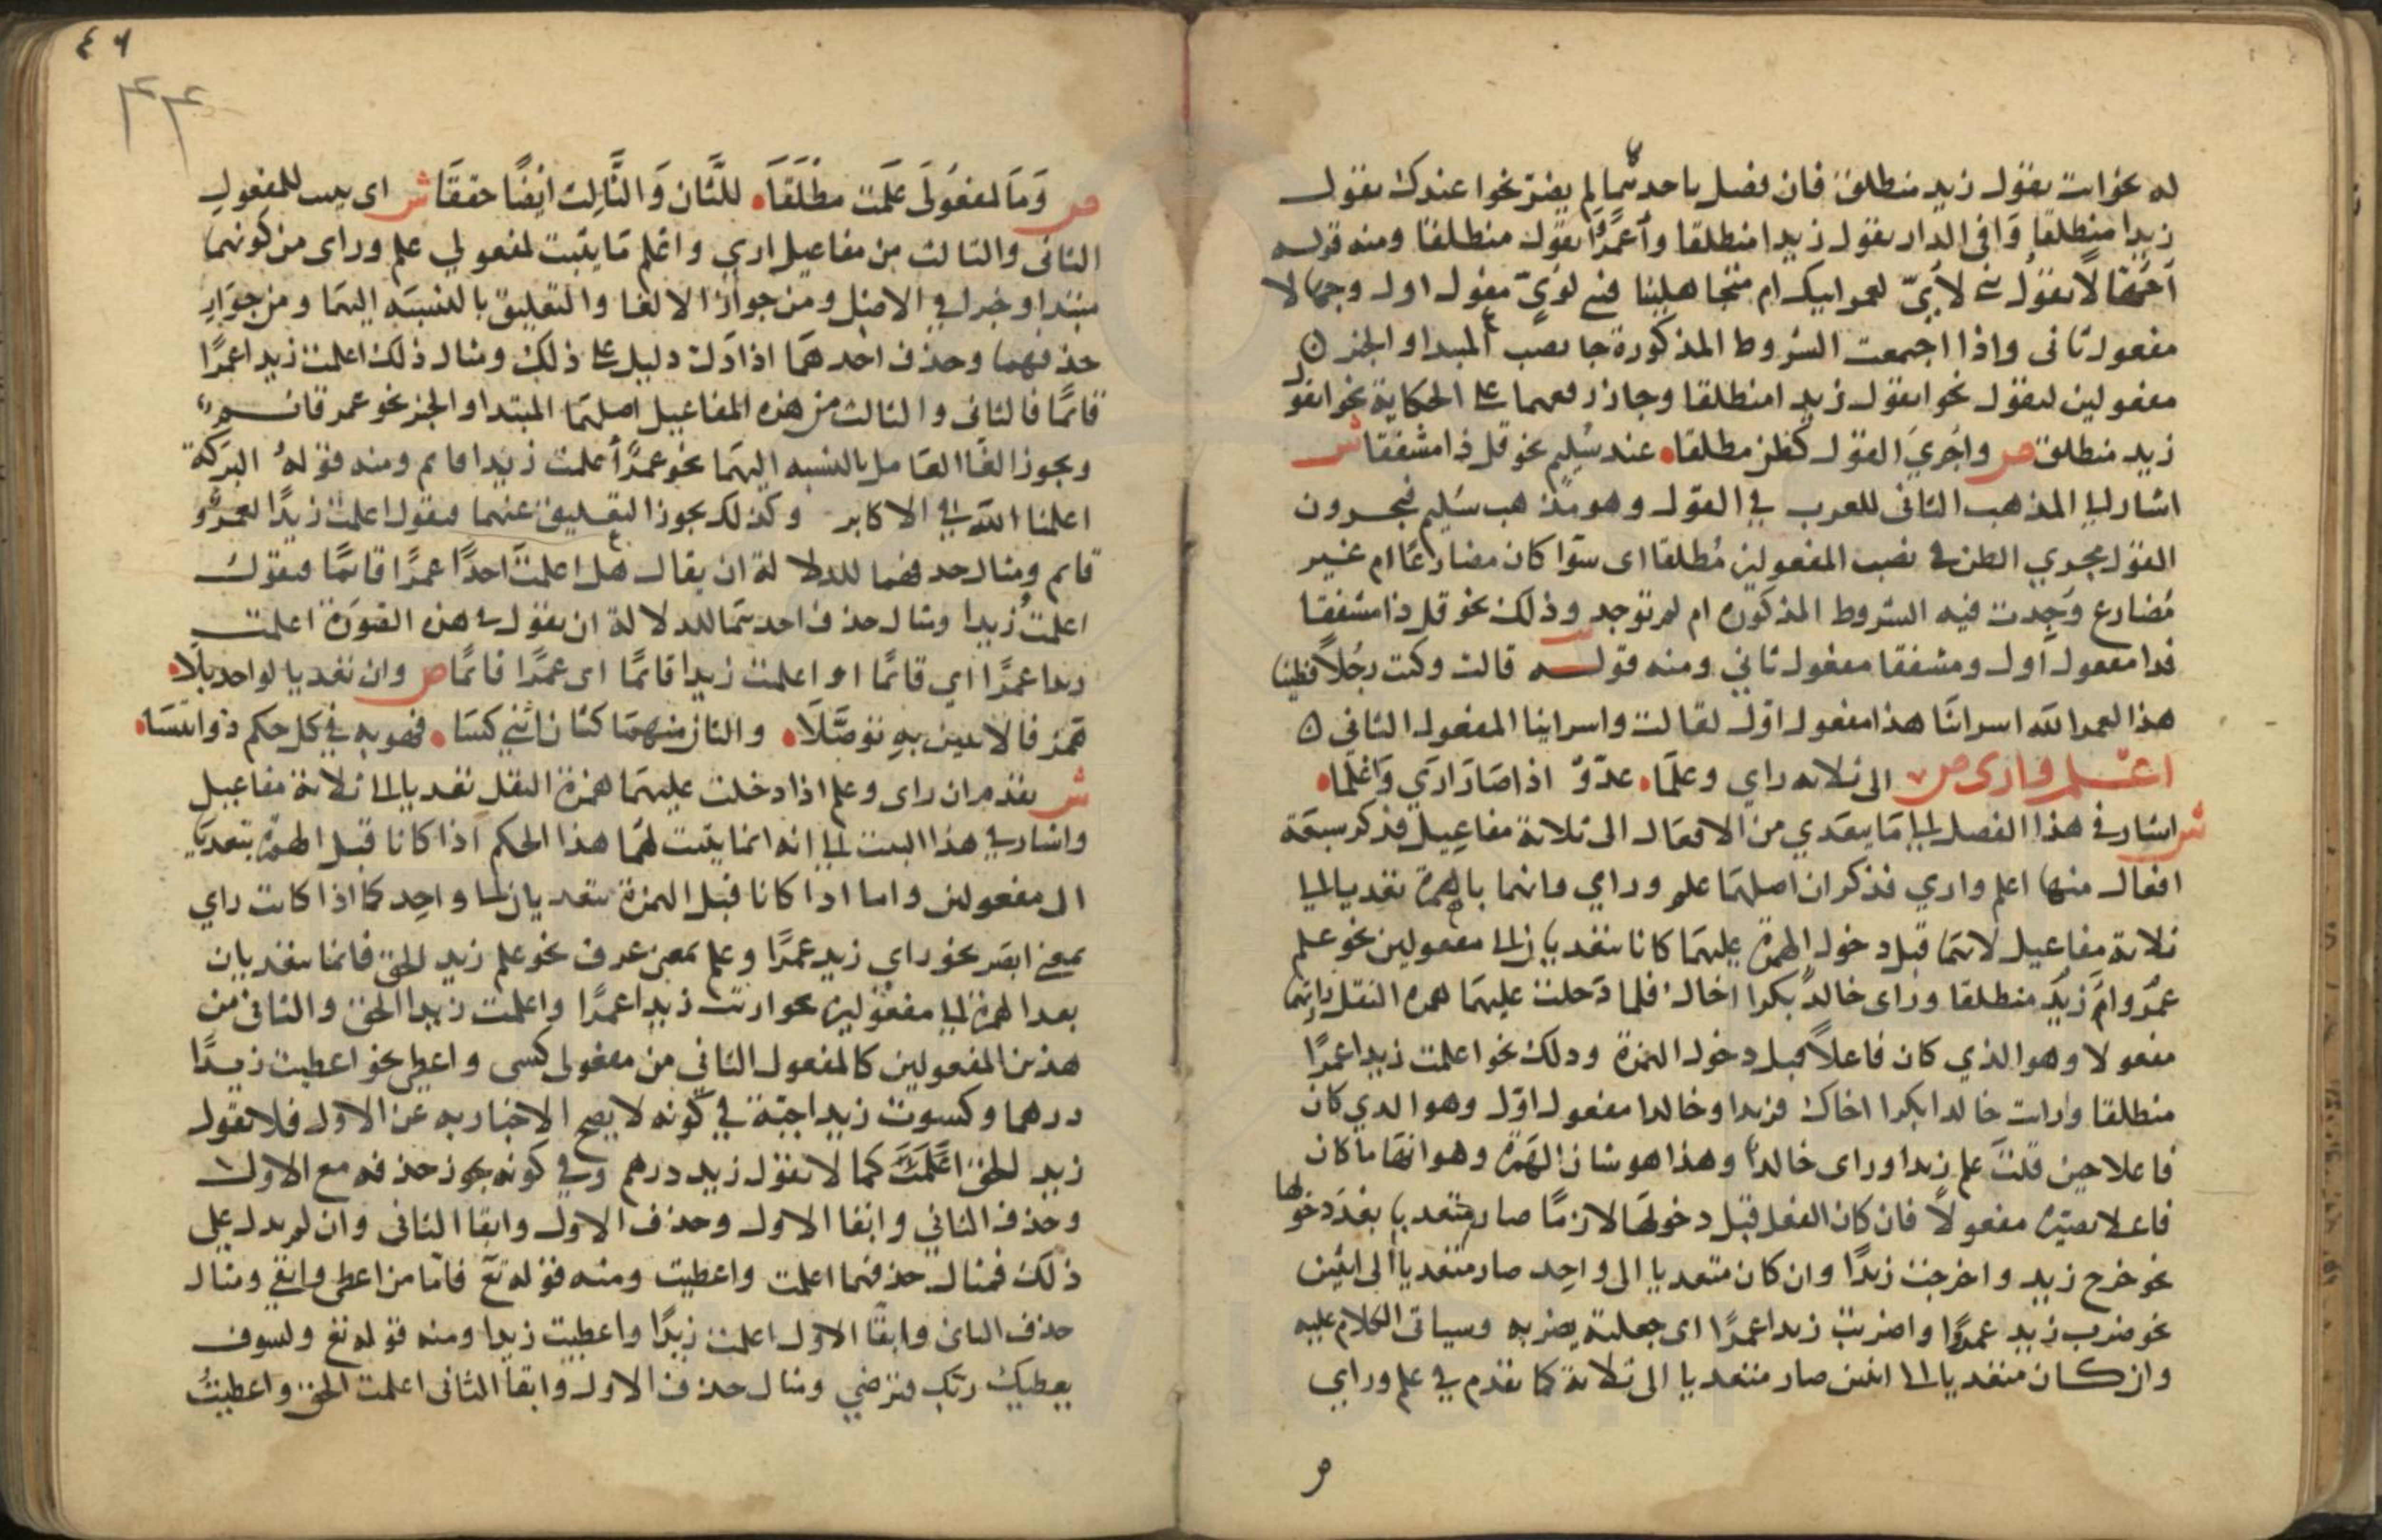 له نحو انت تقول زيد منطلق فان فصل باحدثما لم يضر نحوا عندك تقول
زيدا منطلقا وافى الدار تقول زيدا منطلقا وأعمرًا تقول منطلقا ومنه قوله
أجهّالا تقول بني لؤيّ لعمر ابيك ام متجاهلينا فبنى لؤيّ مفعول اول وجهالا
مفعول ثانى واذا اجتمعت الشروط المذكورة جا نصب المبتدا والخبر
مفعولين لتقول نحو اتقول زيدا منطلقا وجاز رفعهما على الحكاية نحو اتقول
زيد منطلق ص واجري القول كظن مطلقا عند سُليم نحو قل ذا مشفقا ش
اشار الى المذهب الثانى للعرب في القول وهو مذهب سُليم فيجرون
القول مجري الظن في نصب المفعولين مُطلقا اى سوا كان مضارعًا ام غير
مُضارع وُجِدت فيه الشروط المذكورة ام لم توجد وذلك نحو قل ذا مشفقا
فذا مفعول أول ومشفقا مفعول ثاني ومنه قوله قالت وكنت رجُلاً فطينا
هذا لعمر الله اسرائنا هذا مفعول اوّل لقالت واسراينا المفعول الثانى ٥
اعلم وارى ص الى ثلاثه راي وعلما عدّوْ اذا صَارَا ارَي وَاعْلما
ش اشار في هذا الفصل الى ما يتعدي من الافعال الى ثلاثة مفاعيل فذكر سبعة
افعال منها اعلم واري فذكر ان اصلهما علم وراي وانهما بالهمزة تعديا الى
ثلاثة مفاعيل لانهما قبل دخول الهمزة عليهما كانا يتعديان الى مفعولين نحو علم
عمرُو زيد منطلقا وراى خالدٌ بكرا اخاك فلما دخلت عليهما همزه النقل زادتهما
مفعولا وهو الذي كان فاعلاً قبل دخول الهمزة وذلك نحو اعلمت زيدا عمرًا
منطلقا وارات خالدا بكرا اخاك فزيدا وخالدا مفعول اوّل وهو الذي كان
فاعلا حين قلتَ علم زيد وراى خالد وهذا هو شان الهمزة وهو انها ما كان
فاعلا تصيّره مفعولاً فان كان الفعل قبل دخولها لازمًا صار متعديا بعد دخولها
نحو خرج زيد واخرجت زيدًا وان كان متعديا الى واحِد صار متعديا الى اثنين
نحو ضرب زيد عمرًوا واضربت زيدا عمرًا اى جعلته يضربه وسياتى الكلام عليه
وان كان متعديا الى اثنين صار متعديا الى ثلاثة كما تقدم في علم وراي
٤٦
٤٤
ص وَمَا لمفعُولَى عَلَمت مطلقَا للثان وَالثالث ايضًا حققَا ش اى يثبت للمفعول
الثانى والثالث من مفاعيل اري واعْلم مَا يثبت لمفعولي علم وراى من كونهما
مبتدا وخبر في الاصل ومن جواز الالغا والتعليق بالنسبَه اليهمَا ومن جوَازِ
حذفهما وحذف احدهمَا اذا دَل دليل على ذلك ومثال ذلك اعلمت زيدا عمرًا
قائمًا فالثانى والثالث من هذه المفاعيل اصلهما المبتدا والخبر نحو عمر قائم
ويجوز الغا العَامل بالنسبه اليهمَا نحو عمرًا أعلمت زيدا قايم ومنه قوله البرَكة
اعلمنا الله في الاكابر وكذلك يجوز التعليق عنهما فيقول اعلمت زيدًا لعمرو
قايم ومثال حذفهما للدلالة ان يقال هل اعلمتَ احدًا عمرًا قائمًا فيقول
اعلمتُ زيدا ومثال حذف احدهما للدلالة ان تقول في هذه الصّورَة اعلمت
زيدا عمرًا اي قائمًا او اعلمت زيدا قائمًا اى عمرًا قائمًا ص وان تعَديا لواحد بلا
همْز فالاثنين بهِ توصَّلَا والثان منهمَا كثان اثني كسَا فهو به في كل حكم ذو ائتسَا
ش تقدم ان راى وعلم اذا دخلت عليهما همزة النقل تعديا الى ثلاثة مفاعيل
واشار في هذا البيت الى انه انما يثبت لهما هذا الحكم اذا كانا قبل الهمزة يتعديان
الى مفعولين واما اذا كانا قبل الهمزة يتعديان الى واحِد كما اذا كانت راي
بمعنى ابصَر نحو راي زيد عمرًا وعلم بمعنى عرف نحو علم زيد الحق فانهما يتعديان
بعد الهمزة الى مفعولين نحو اريت زيدا عمرًا واعلمت زيدا الحق والثانى من
هذين المفعولين كالمفعول الثاني من مفعولى كسى واعطى نحو اعطيت زيدًا
درهما وكسوت زيدا جبّة في كونه لا يصح الاخبار به عن الاول فلا تقول
زيد الحق اعلمت كما لا تقول زيد درهم وفي كونه يجوز حذفه مع الاول
وحذف الثاني وابقا الاول وحذف الاول وابقا الثانى وان لم يدل على
ذلك فمثال حذفهما اعلمت واعطيت ومنه قوله تعَ فاما من اعطى واتقي ومثال
حذف الثانى وابقا الاول اعلمت زيدًا واعطيت زيدا ومنه قوله تع ولسوف
يعطيك ربّك فترضي ومثال حذف الاول وابقا الثانى اعلمت الحق واعطيتُ